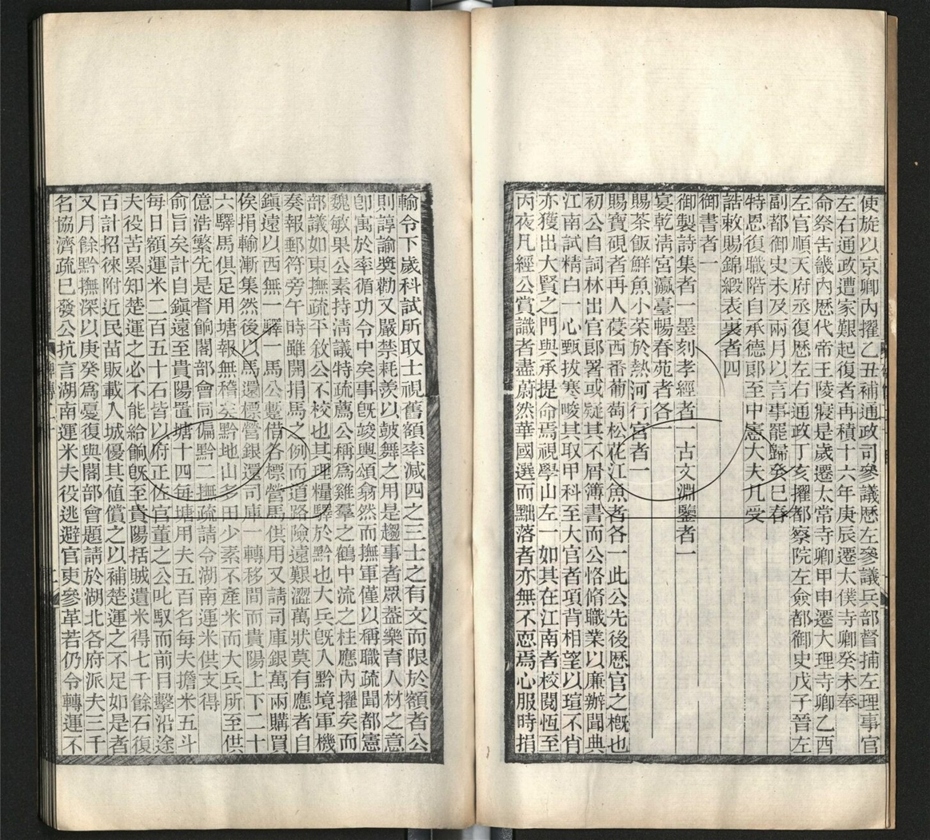 使旋以京卿內擢乙丑補通政司參議歷左參議兵部督捕左理事官
左右通政遭家艱起復者再積十六年庚辰遷太僕寺卿癸未奉
命祭告畿內歷代帝王陵寢是歲遷太常寺卿甲申遷大理寺卿乙酉
左官順天府丞復歷左右通政丁亥擢都察院左僉都御史戊子晉左
副都御史未及兩月以言事罷歸癸巳春
特恩復職階自承德郎至中憲大夫凡受
誥敕賜錦緞表裏者四
御書者一
御製詩集者一墨刻孝經者一古文淵鑒者一
宴乾清宮瀛臺暢春苑者各一
賜茶飯鮮魚小菜於熱河行宮者一
賜寶硯者再人葠西番葡萄松花江魚者各一此公先後歷官之槪也
初公自詞林出官郎署或疑其不屑簿書而公恪脩職業以廉辦聞典
江南試精白一心甄拔寒畯其取甲科至大官者項背相望以瑄不肖
亦獲出大賢之門與承提命焉視學山左一如其在江南者校閱恆至
丙夜凡經公賞識者盡蔚然華國選而黜落者亦無不悳焉心服時捐
輸令下歲科試所取士視舊額率減四之三士之有文而限於額者公
則諄諭奬勸又嚴禁耗羨以鼓舞之用是趨事者眾蓋樂育人材之意
卽寓於率循功令中矣事旣竣輿頌翕然而撫軍僅以稱職疏聞都憲
魏敏果公素持清議特疏薦公稱爲雞羣之鶴中流之柱應內擢矣而
部議如東撫疏平敘公不校也其理糧驛於黔也大兵旣入黔境軍機
奏報郵符旁午時雖開捐馬之例而道路險遠艱澀萬狀莫有應者自
鎭遠以西無一驛一馬公暫借各標營馬供用又請司庫銀萬兩購買
俟捐輸漸集然後以馬還標營銀還司庫一轉移間而貴陽上下二十
六驛馬俱足用塘報無稽矣黔地山多田少素不產米而大兵所至供
億浩繁先是督餉閣部會同偏黔二撫疏請令湖南運米供支得
俞旨矣計自鎭遠至貴陽置塘十四每塘用夫五百名每夫擔米五斗
每日額運米二百五十石皆以府正佐官董之公叱馭而前目擊沿途
夫役苦累知楚運之必不能給餉旣至貴陽括賊遺米得七千餘石復
百計招徠附近民苗販載人城優其値償之以補楚運之不足如是者
又月餘黔撫深以庚癸爲憂復與閣部會題請於湖北各府派夫三千
名協濟疏已發公抗言湖南運米夫役逃避官吏參革若仍令轉運不